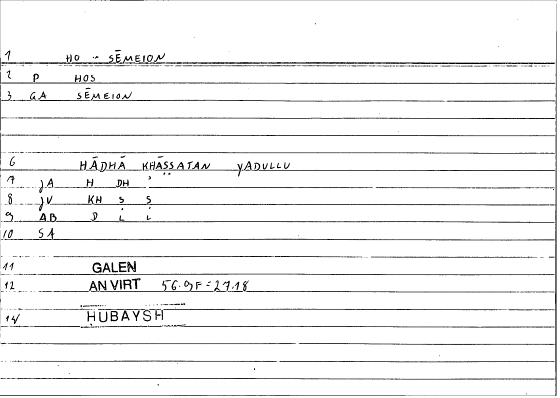 1 HO - SĒMEION
2 P HOS
3 GA SĒMEION
6 HĀDHĀ KHĀṢṢATAN YADULLU
7 JA H DH '
8 JV KH Ṣ Ṣ
9 AB D L L
10 SA
11 GALEN
12 AN VIRT 56.9F=27.18
14 ḤUBAYSH